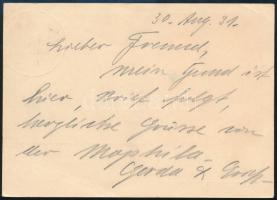 30. Aug. 31.
Lieber Freund,
mein Hund ist
hier, Brief folgt,
herzliche Grüsse von
der Maphila
Gerda &